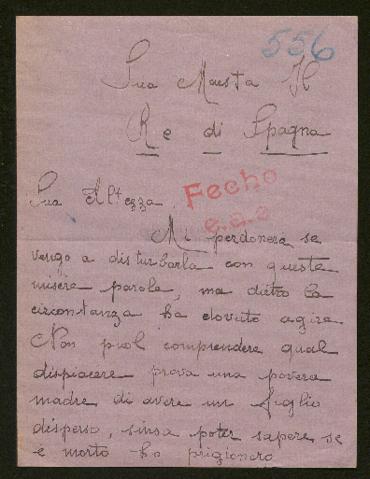 556
Sua Maesta Il
Re di Spagna
Sua Altezza
Fecho
Mi perdonera se
vengo a disturbarla con queste
misere parole, ma dietro la
circontanza ho dovuto agire
Non puol comprendere qual
dispiacere prova una povera
madre di avere un figlio
disperso, sinsa poter sapere se
e morto ho prigionero